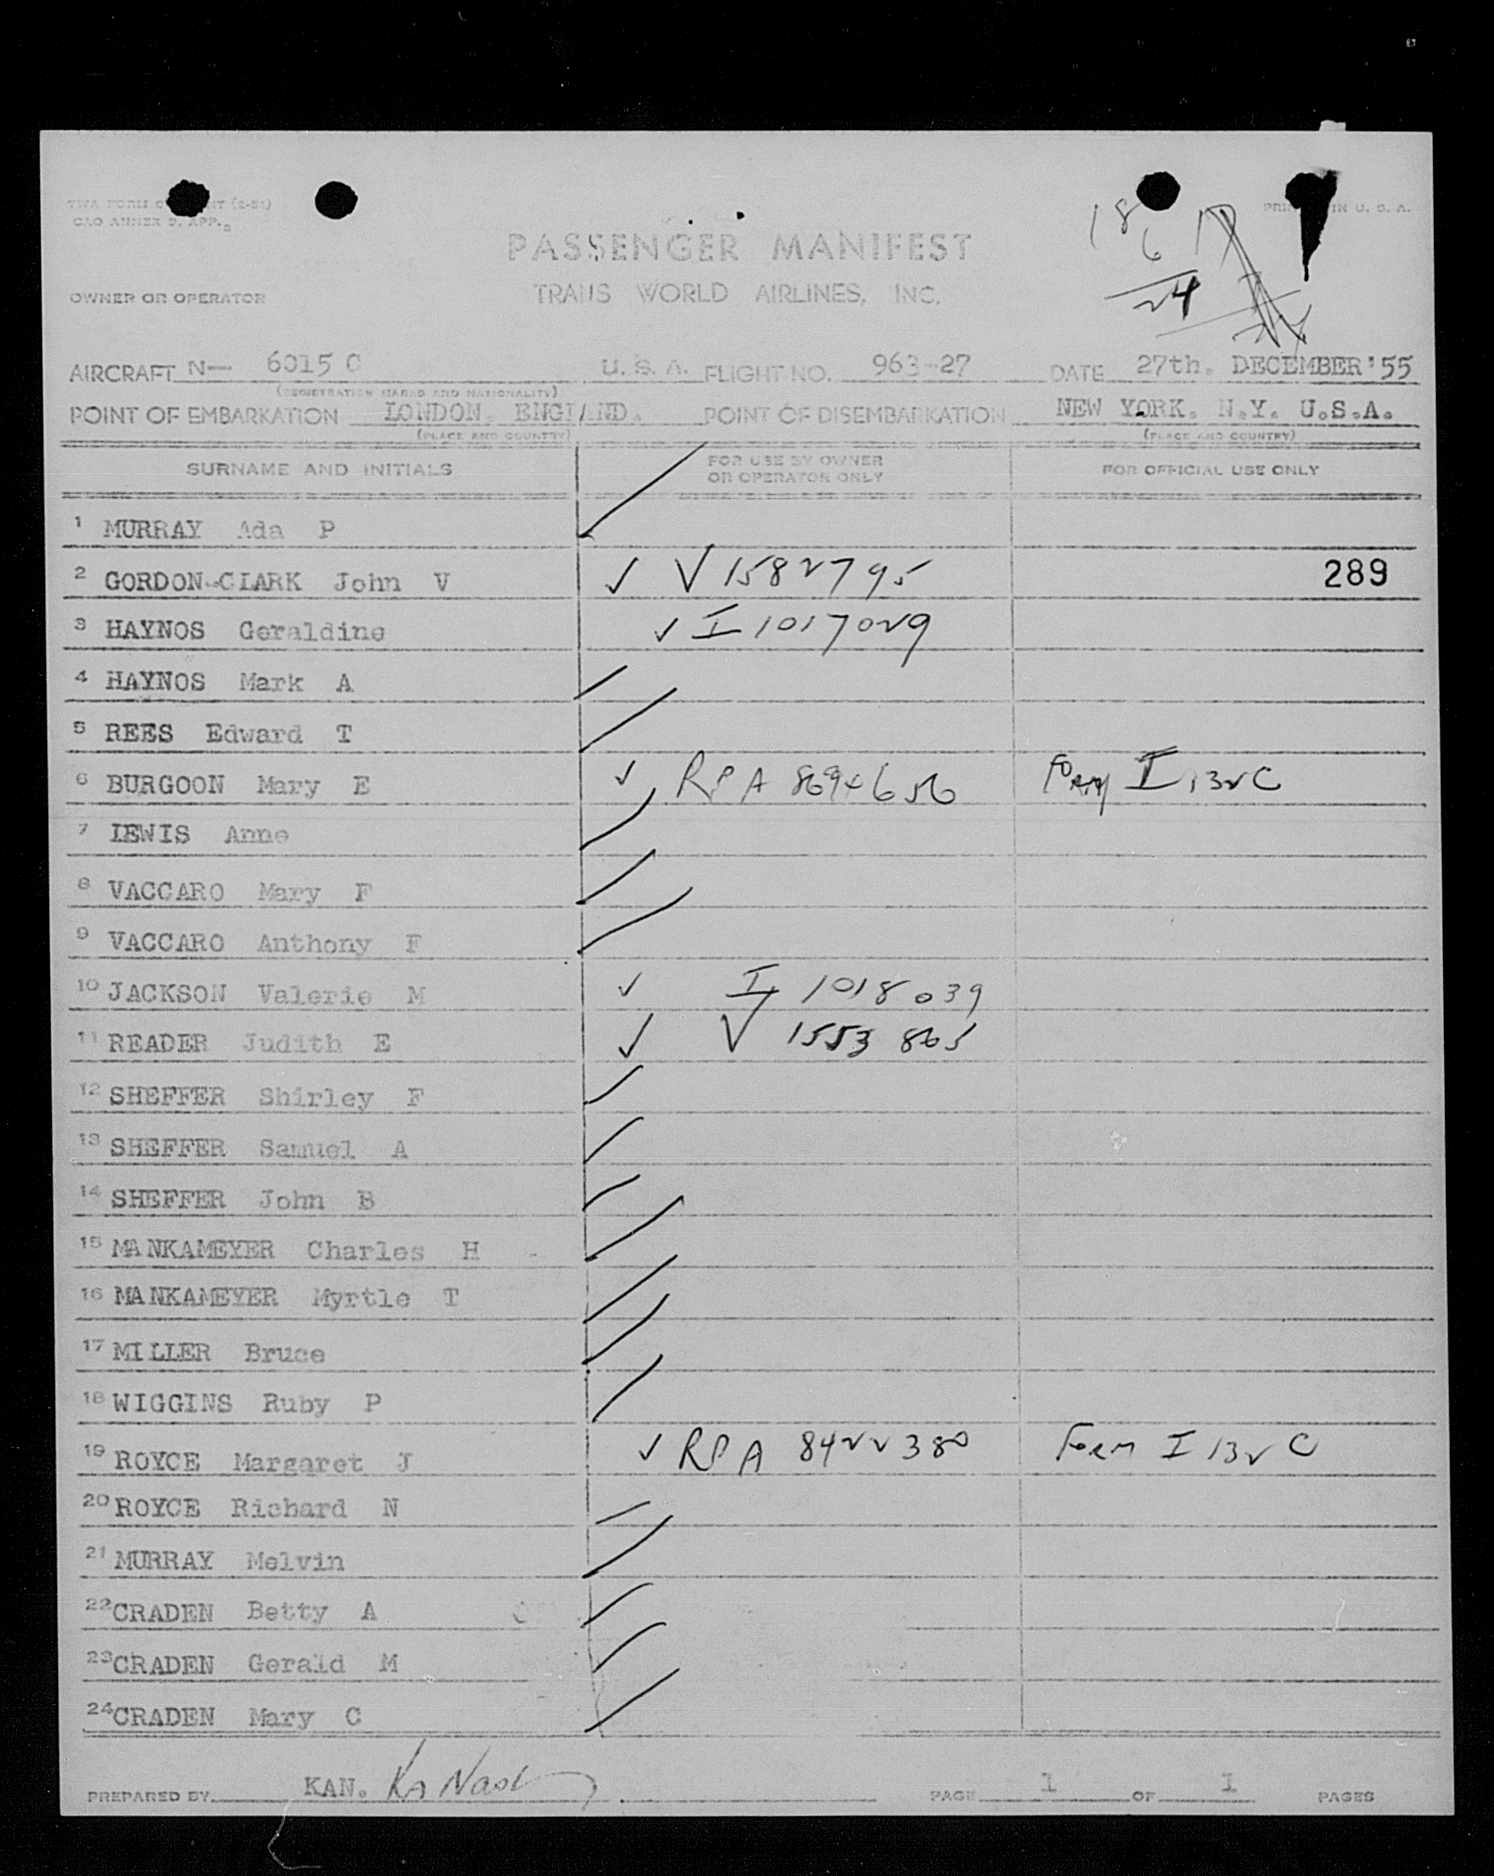 TWA FORM (2-54)
PRINTED IN U. S. A.
CAO ANNEX 9, APP.
18
6
24
PASSENGER MANIFEST
OWNER OR OPERATOR
TRANS WORLD AIRLINES, INC.
AIRCRAFT N— 6015 C U. S. A. FLIGHT NO. 963-27 DATE 27th. DECEMBER '55
(REGISTRATION MARKS AND NATIONALITY)
POINT OF EMBARKATION LONDON. ENGLAND. POINT OF DISEMBARKATION NEW YORK. N.Y. U.S.A.
(PLACE AND COUNTRY) (PLACE AND COUNTRY)
SURNAME AND INITIALS FOR USE BY OWNER OR OPERATOR ONLY FOR OFFICIAL USE ONLY
1 MURRAY Ada P
2 GORDON-CLARK John V ✓ V 1582795 289
3 HAYNOS Geraldine ✓ I 1017029
4 HAYNOS Mark A
5 REES Edward T
6 BURGOON Mary E ✓ RPA 8694656 Form I 132C
7 LEWIS Anne
8 VACCARO Mary F
9 VACCARO Anthony F
10 JACKSON Valerie M ✓ I 1018039
11 READER Judith E ✓ V 1553865
12 SHEFFER Shirley F
13 SHEFFER Samuel A
14 SHEFFER John B
15 MANKAMEYER Charles H
16 MANKAMEYER Myrtle T
17 MILLER Bruce
18 WIGGINS Ruby P
19 ROYCE Margaret J ✓ RPA 8422380 Form I 132C
20 ROYCE Richard N
21 MURRAY Melvin
22 CRADEN Betty A
23 CRADEN Gerald M
24 CRADEN Mary C
PREPARED BY KAN. KA Nash PAGE 1 OF 1 PAGES